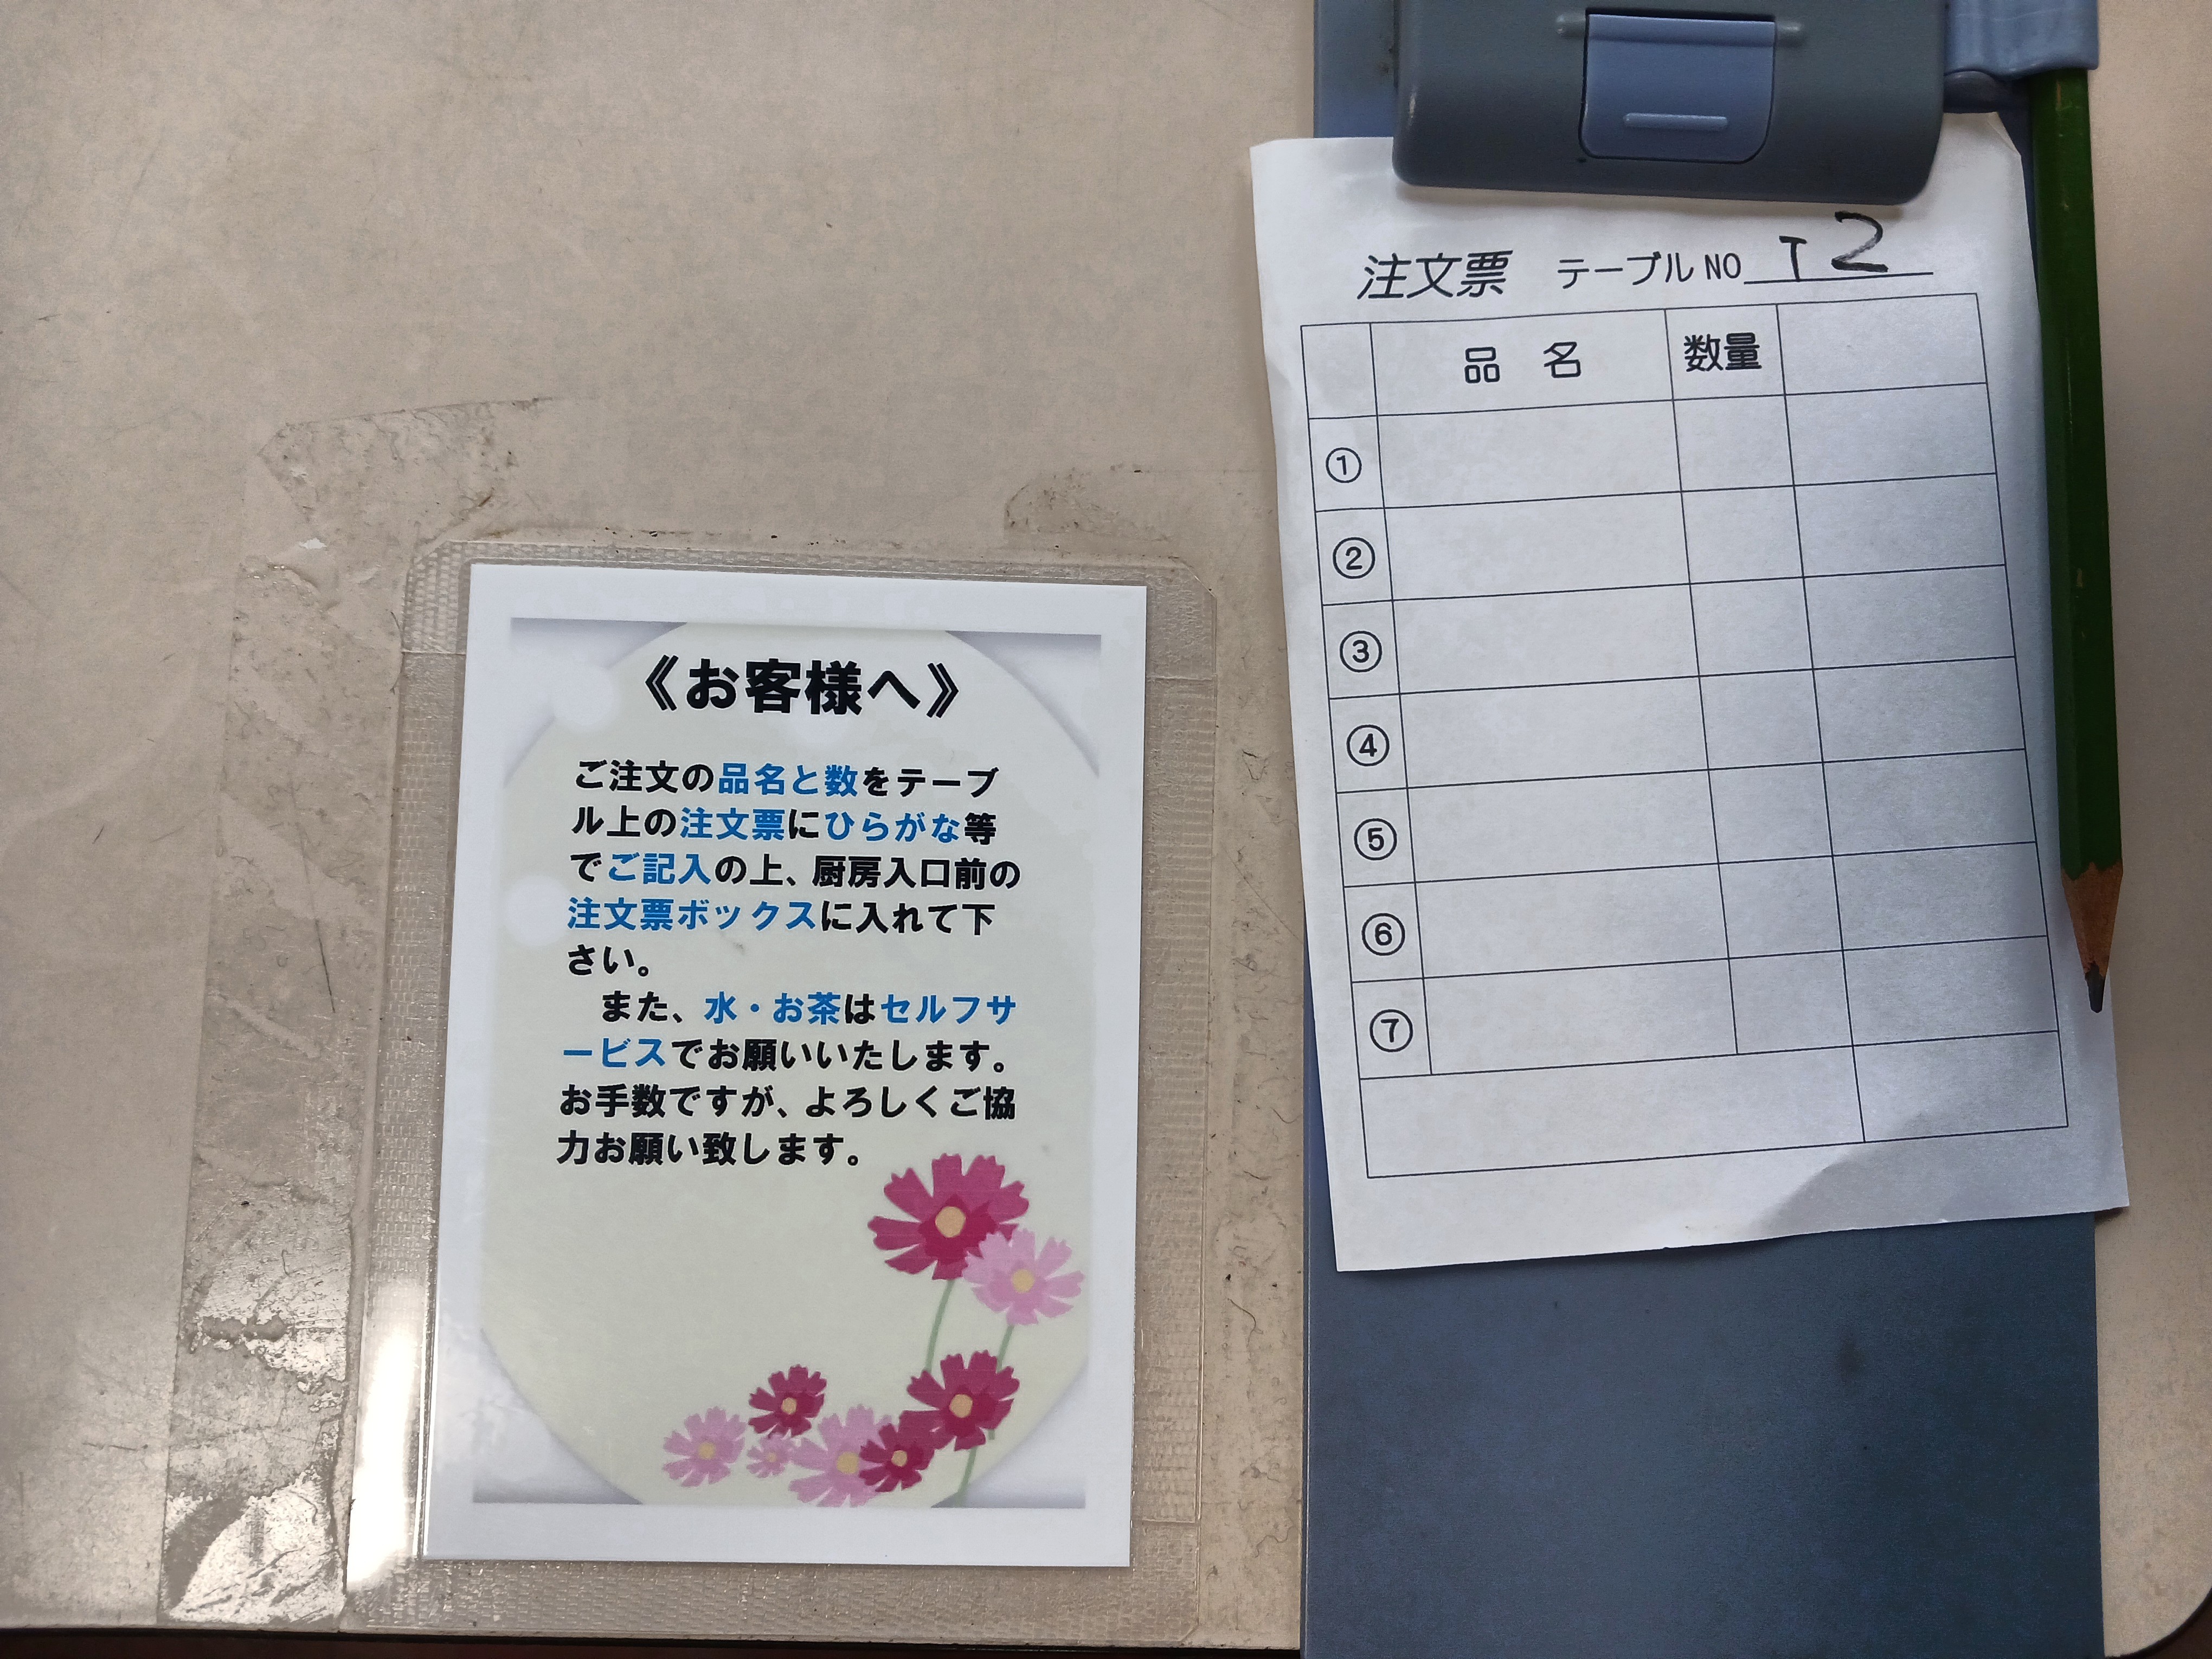 《お客様へ》
ご注文の品名と数をテーブ
ル上の注文票にひらがな等
でご記入の上、厨房入口前の
注文票ボックスに入れて下
さい。
また、水・お茶はセルフサ
ービスでお願いいたします。
お手数ですが、よろしくご協
力お願い致します。
注文票 テーブルNO T2
品 名 数量
①
②
③
④
⑤
⑥
⑦